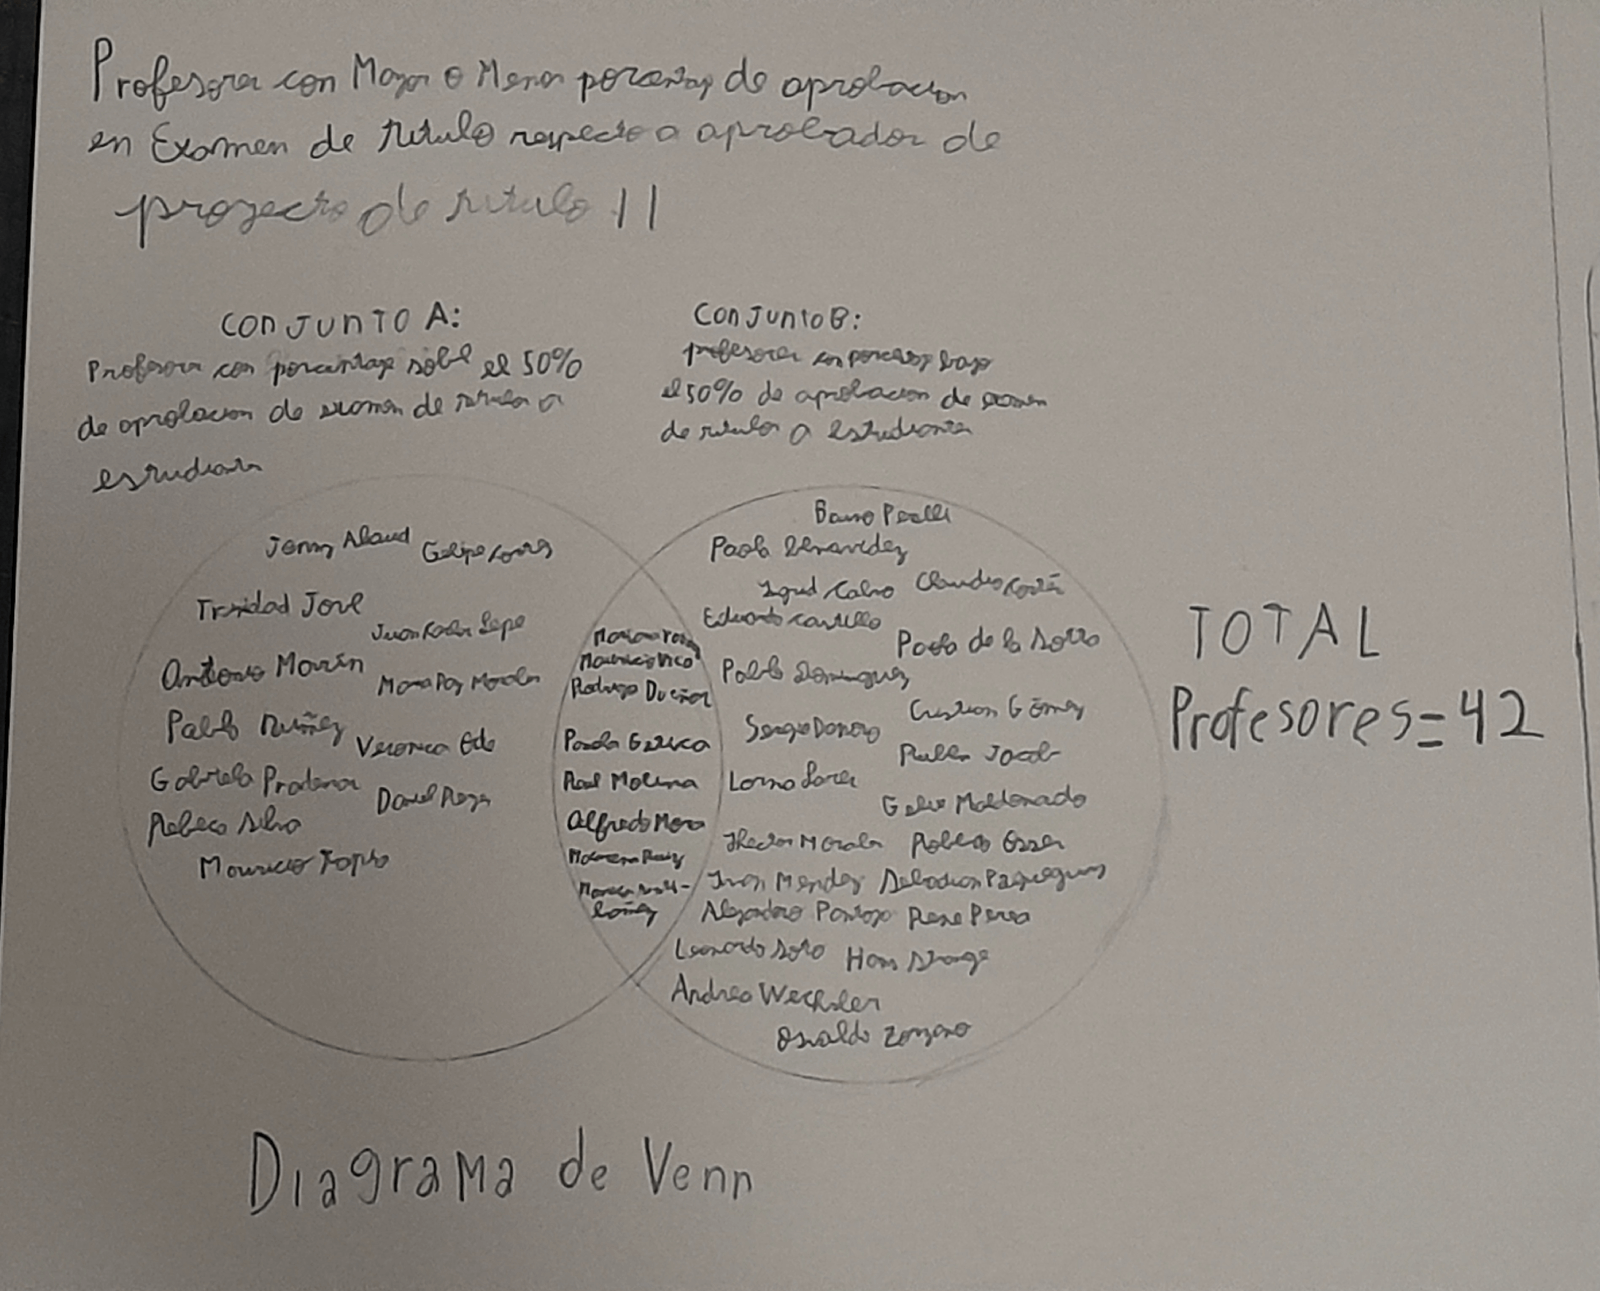 Profesores con Mayor o Menor porcentaje de aprobacion
en Examen de titulo respecto a aprobador de
proyecto de titulo II
CONJUNTO A:
Profesores con porcentaje sobre el 50%
de aprobacion de examen de titulo a
estudiantes
CONJUNTO B:
profesores con porcentaje bajo
el 50% de aprobacion de examen
de titulos a estudiantes
Jenny Abaud Felipe Cortes
Trinidad Jove
Juan Carlos Lepe
Antonio Marin
Maria Paz Morales
Pablo Nuñez
Veronica
Gabriela Pradena
Daniel Reyes
Rebeca Silva
Mauricio Tapia
Mariana
Mauricio Vico
Rodrigo Dueñas
Paola
Raul Molina
Alfredo Mora
Macarena Ruiz
Bruno Perelli
Paola Benavidez
Ingrid Calvo Claudio Cortés
Eduardo Castillo
Paola de la Sotta
Pablo Dominguez
Cristian Gómez
Sergio Donoso
Ruben Jacob
Lorna Lares
Maldonado
Hector Morales Roberto Osses
Ivan Mendez Sebastian
Alejandro Pantoja Rene Perea
Leonardo Soto Hans Stange
Andrea Wechsler
Osvaldo Zorzano
TOTAL
Profesores=42
Diagrama de Venn